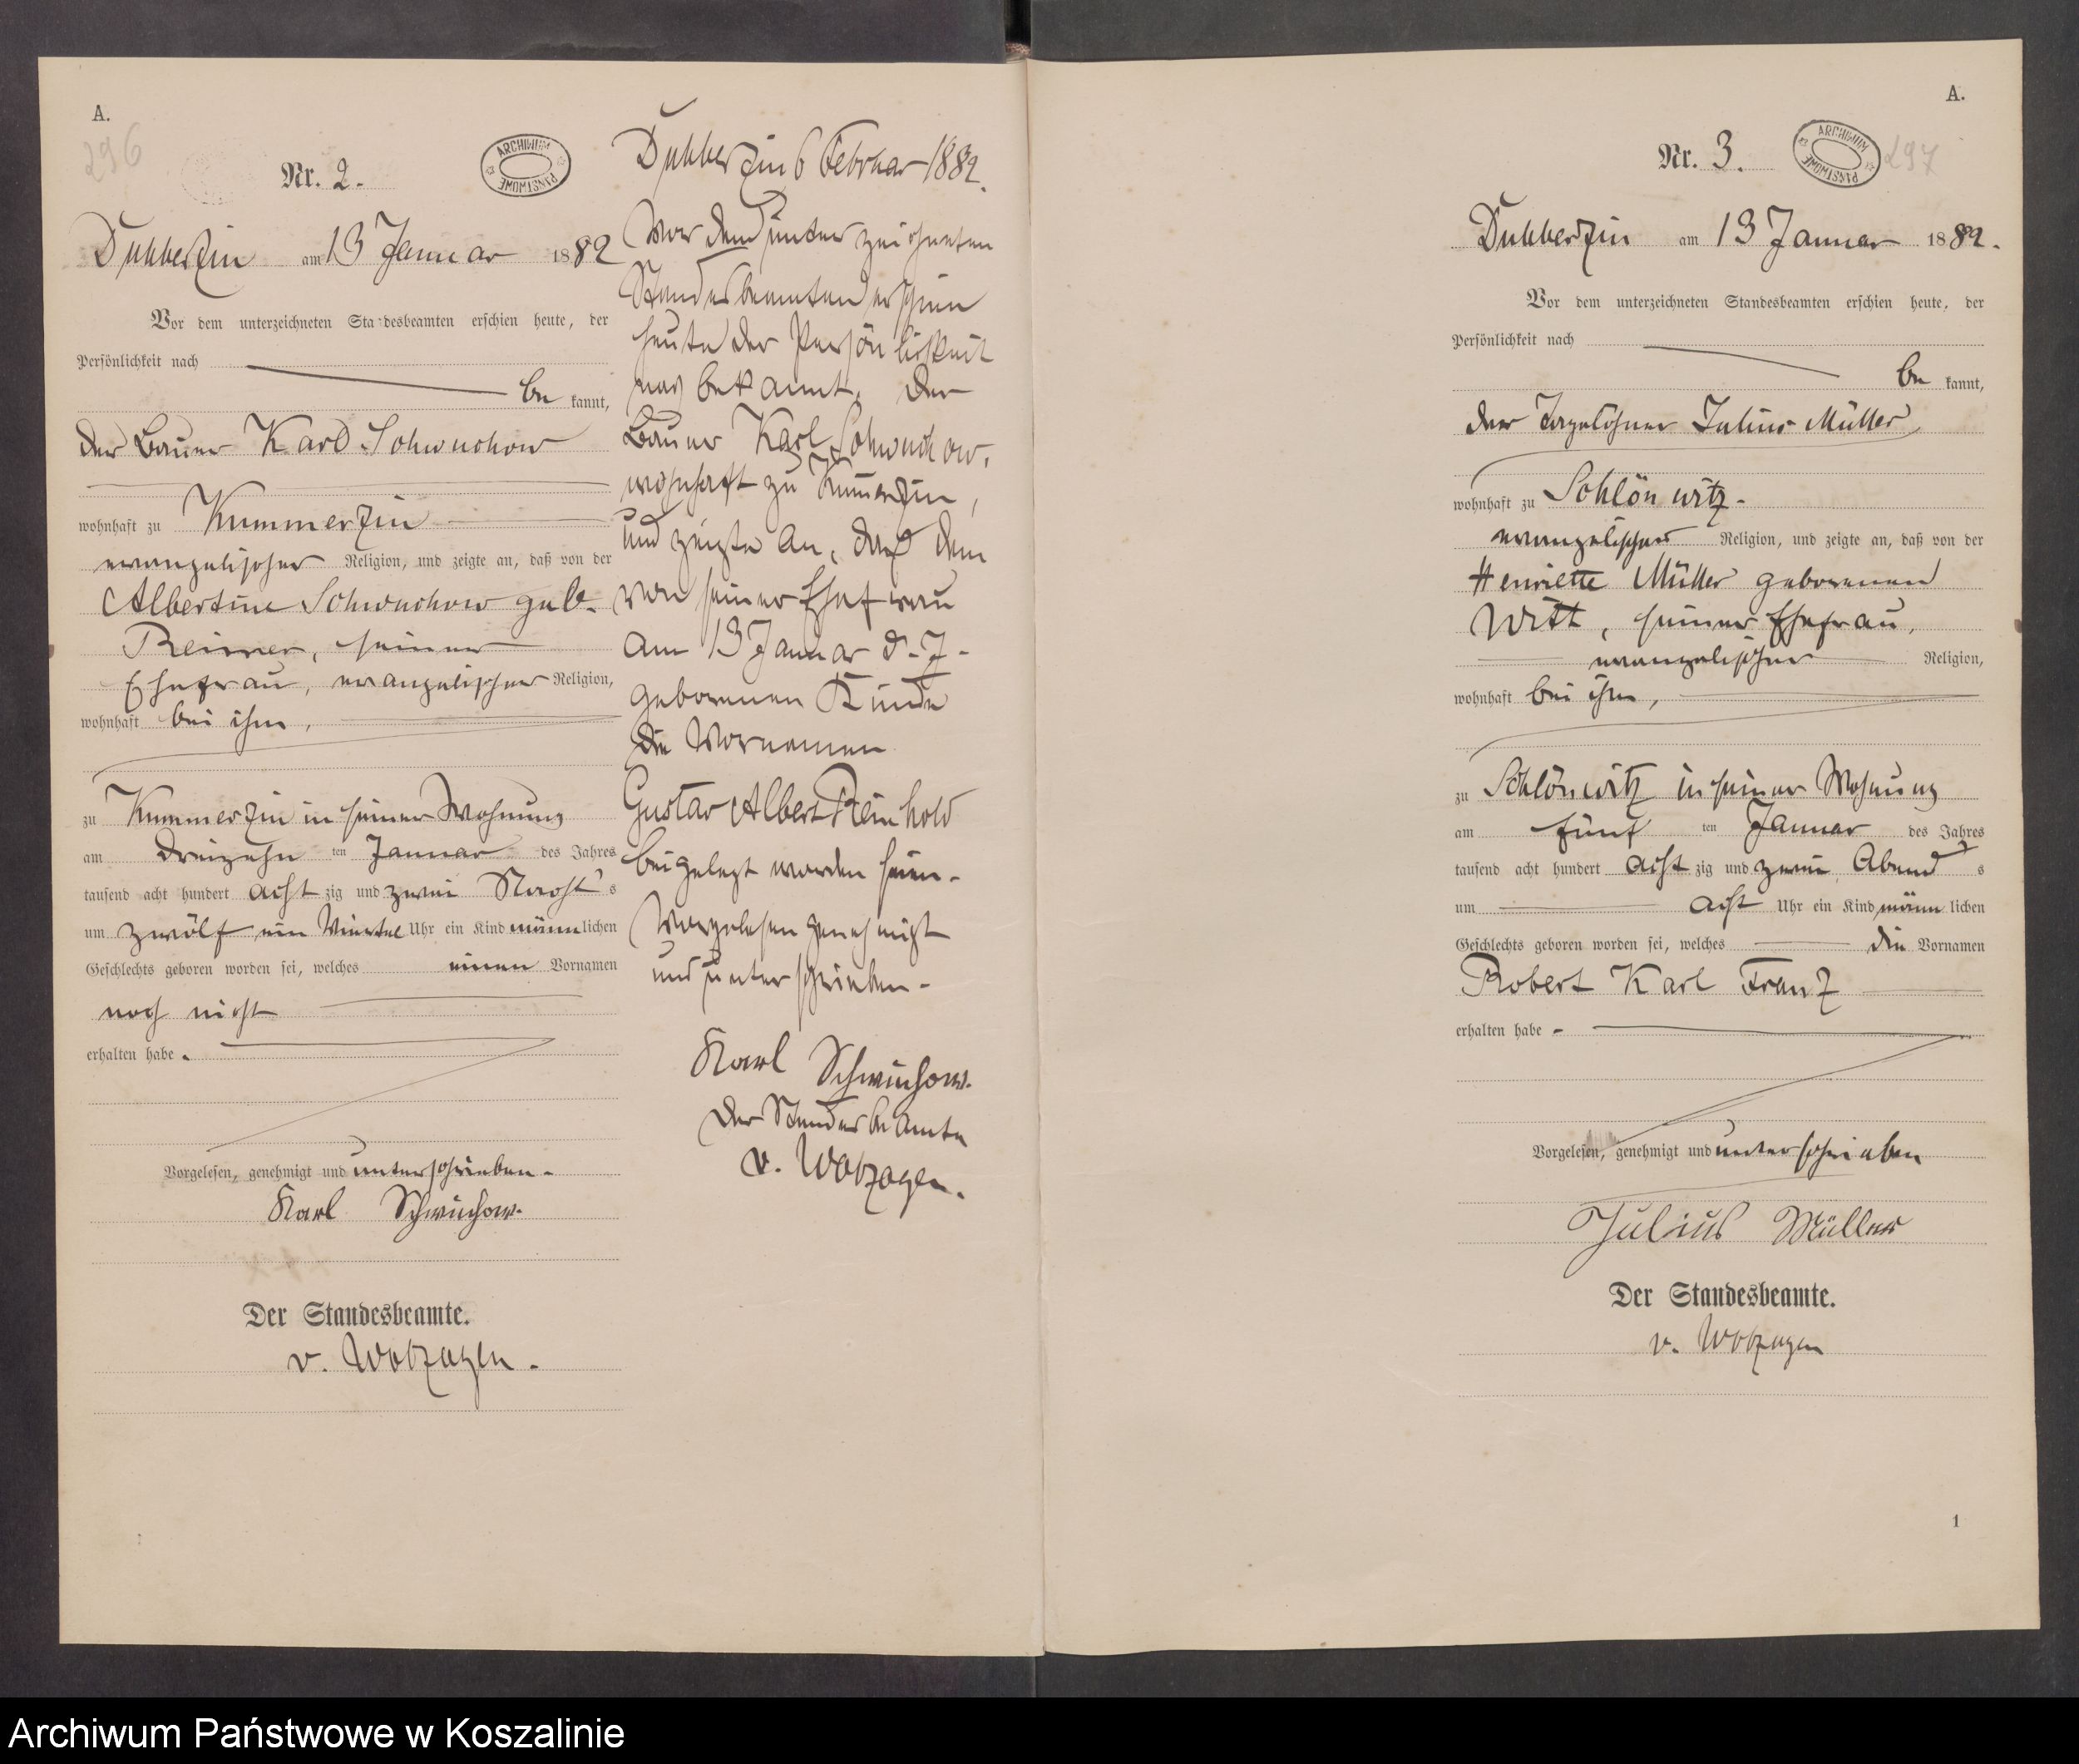 A.
296
Nr. 2.
ARCHIWUM PAŃSTWOWE
Dubberzin am 13 Januar 1882
Vor dem unterzeichneten Standesbeamten erschien heute, der
Persönlichkeit nach
be kannt,
der Bauer Karl Schwuchow
wohnhaft zu Kummerzin
evangelischer Religion, und zeigte an, daß von der
Albertine Schwuchow geb.
Reimer, seiner
Ehefrau, evangelischer Religion,
wohnhaft bei ihm,
zu Kummerzin in seiner Wohnung
am dreizehn ten Januar des Jahres
tausend acht hundert acht zig und zwei Nacht's
um zwölf ein Viertel Uhr ein Kind männlichen
Geschlechts geboren worden sei, welches einen Vornamen
noch nicht
erhalten habe.
Vorgelesen, genehmigt und unterschrieben.
Karl Schwuchow.
Der Standesbeamte.
v. Wobzagen.
Dubberzin 6 Februar 1882.
Vor dem unterzeichneten
Standesbeamten erschien
heute der Persönlichkeit
nach bekannt, der
Bauer Karl Schwuchow,
wohnhaft zu Kummerzin,
und zeigte an, daß dem
von seiner Ehefrau
am 13 Januar d. J.
geborenen Kinde
die Vornamen
Gustav Albert Reinhold
beigelegt worden seien.
Vorgelesen genehmigt
und unterschrieben.
Karl Schwuchow.
Der Standesbeamte
v. Wobzagen.
A.
Nr. 3.
ARCHIWUM PAŃSTWOWE
297
Dubberzin am 13 Januar 1882.
Vor dem unterzeichneten Standesbeamten erschien heute, der
Persönlichkeit nach
be kannt,
der Tagelöhner Julius Müller
wohnhaft zu Schlönwitz
evangelischer Religion, und zeigte an, daß von der
Henriette Müller geborenen
Witt, seiner Ehefrau,
evangelischer Religion,
wohnhaft bei ihm,
zu Schlönwitz in seiner Wohnung
am fünf ten Januar des Jahres
tausend acht hundert acht zig und zwei Abend's
um acht Uhr ein Kind männ lichen
Geschlechts geboren worden sei, welches die Vornamen
Robert Karl Franz
erhalten habe
Vorgelesen, genehmigt und unterschrieben
Julius Müller
Der Standesbeamte.
v. Wobzagen
1
Archiwum Państwowe w Koszalinie